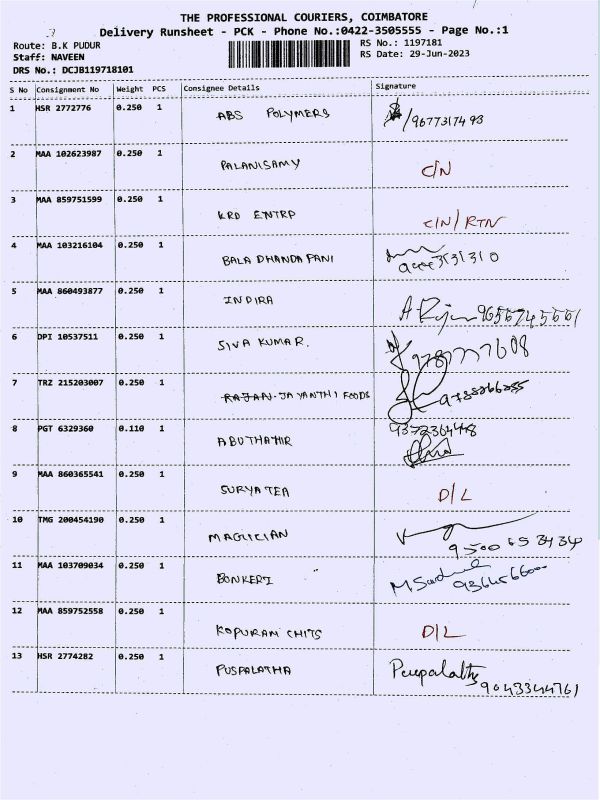 THE PROFESSIONAL COURIERS, COIMBATORE
Delivery Runsheet - PCK - Phone No.:0422-3505555 - Page No.:1
Route: B.K PUDUR
RS No.: 1197181
Staff: NAVEEN
RS Date: 29-Jun-2023
DRS No.: DCJB119718101
S No Consignment No Weight PCS Consignee Details Signature
1 HSR 2772776 0.250 1 ABS POLYMERS 9677317493
2 MAA 102623987 0.250 1 PALANISAMY C/N
3 MAA 859751599 0.250 1 KRD ENTRP C/N/RTN
4 MAA 103216104 0.250 1 BALA DHANDA PANI
5 MAA 860493877 0.250 1 INDIRA
6 DPI 10537511 0.250 1 SIVA KUMAR.
7 TRZ 215203007 0.250 1 RAJAN JAYANTHI FOODS
8 PGT 6329360 0.110 1 ABUTHAHIR
9 MAA 860365541 0.250 1 SURYA TEA D/L
10 TMG 200454190 0.250 1 MAGICIAN 9500653434
11 MAA 103709034 0.250 1
12 MAA 859752558 0.250 1 KOPURAM CHITS D/L
13 HSR 2774282 0.250 1 PUSPALATHA 9043344761